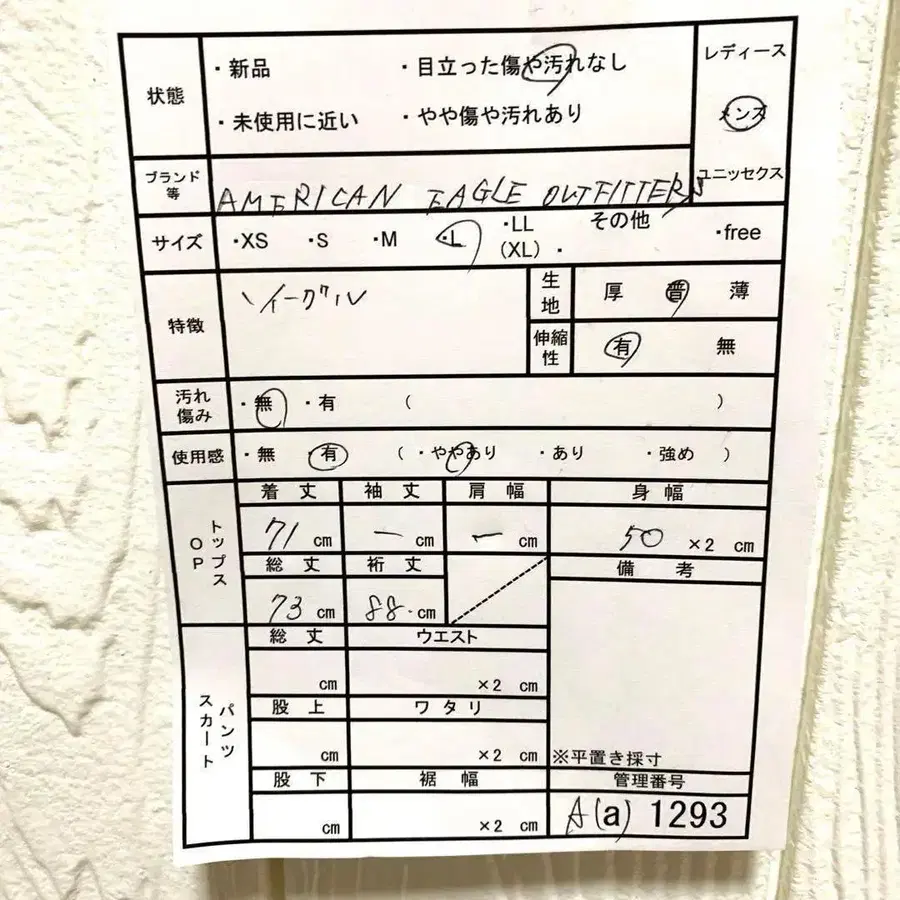 状態
・新品 ・目立った傷や汚れなし
・未使用に近い ・やや傷や汚れあり
レディース
メンズ
ユニッセクス
ブランド等
AMERICAN EAGLE OUTFITTERS
サイズ ・XS ・S ・M ・L ・LL (XL) ・ その他 ・free
特徴
イーグル
生地 厚 普 薄
伸縮性 有 無
汚れ傷み ・無 ・有 ( )
使用感 ・無 ・有 ( ・ややあり ・あり ・強め )
トップス OP
着丈 袖丈 肩幅 身幅
71 cm ー cm ー cm 50 ×2 cm
総丈 裄丈 備考
73 cm 88. cm
パンツ スカート
総丈 ウエスト
cm ×2 cm
股上 ワタリ
cm ×2 cm ※平置き採寸
股下 裾幅 管理番号
cm ×2 cm A(a) 1293